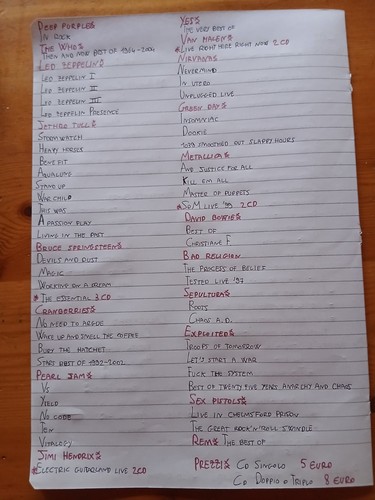 DEEP PURPLE
IN ROCK
THE WHO
THEN AND NOW BEST OF 1964-2004
LED ZEPPELIN
LED ZEPPELIN I
LED ZEPPELIN II
LED ZEPPELIN III
LED ZEPPELIN PRESENCE
JETHRO TULL
STORMWATCH
HEAVY HORSES
BENEFIT
AQUALUNG
STAND UP
WAR CHILD
THIS WAS
A PASSION PLAY
LIVING IN THE PAST
BRUCE SPRINGSTEEN
DEVILS AND DUST
MAGIC
WORKING ON A DREAM
* THE ESSENTIAL 3 CD
CRANBERRIES
NO NEED TO ARGUE
WAKE UP AND SMELL THE COFFEE
BURY THE HATCHET
STARS BEST OF 1992-2002
PEARL JAM
VS
YIELD
NO CODE
TEN
VITALOGY
JIMI HENDRIX
* ELECTRIC GUITARLAND LIVE 2CD
YES
THE VERY BEST OF
VAN HALEN
* LIVE RIGHT HERE RIGHT NOW 2 CD
NIRVANA
NEVERMIND
IN UTERO
UNPLUGGED LIVE
GREEN DAY
INSOMNIAC
DOOKIE
1039 SMOOTHED OUT SLAPPY HOURS
METALLICA
AND JUSTICE FOR ALL
KILL EM ALL
MASTER OF PUPPETS
* S&M LIVE '99 2CD
DAVID BOWIE
BEST OF
CHRISTIANE F
BAD RELIGION
THE PROCESS OF BELIEF
TESTED LIVE '97
SEPULTURA
ROOTS
CHAOS A.D.
EXPLOITED
TROOPS OF TOMORROW
LET'S START A WAR
FUCK THE SYSTEM
BEST OF TWENTY FIVE YEARS ANARCHY AND CHAOS
SEX PISTOLS
LIVE IN CHELMSFORD PRISON
THE GREAT ROCK'N'ROLL SWINDLE
REM THE BEST OF
PREZZI CD SINGOLO 5 EURO
CD DOPPIO O TRIPLO 8 EURO